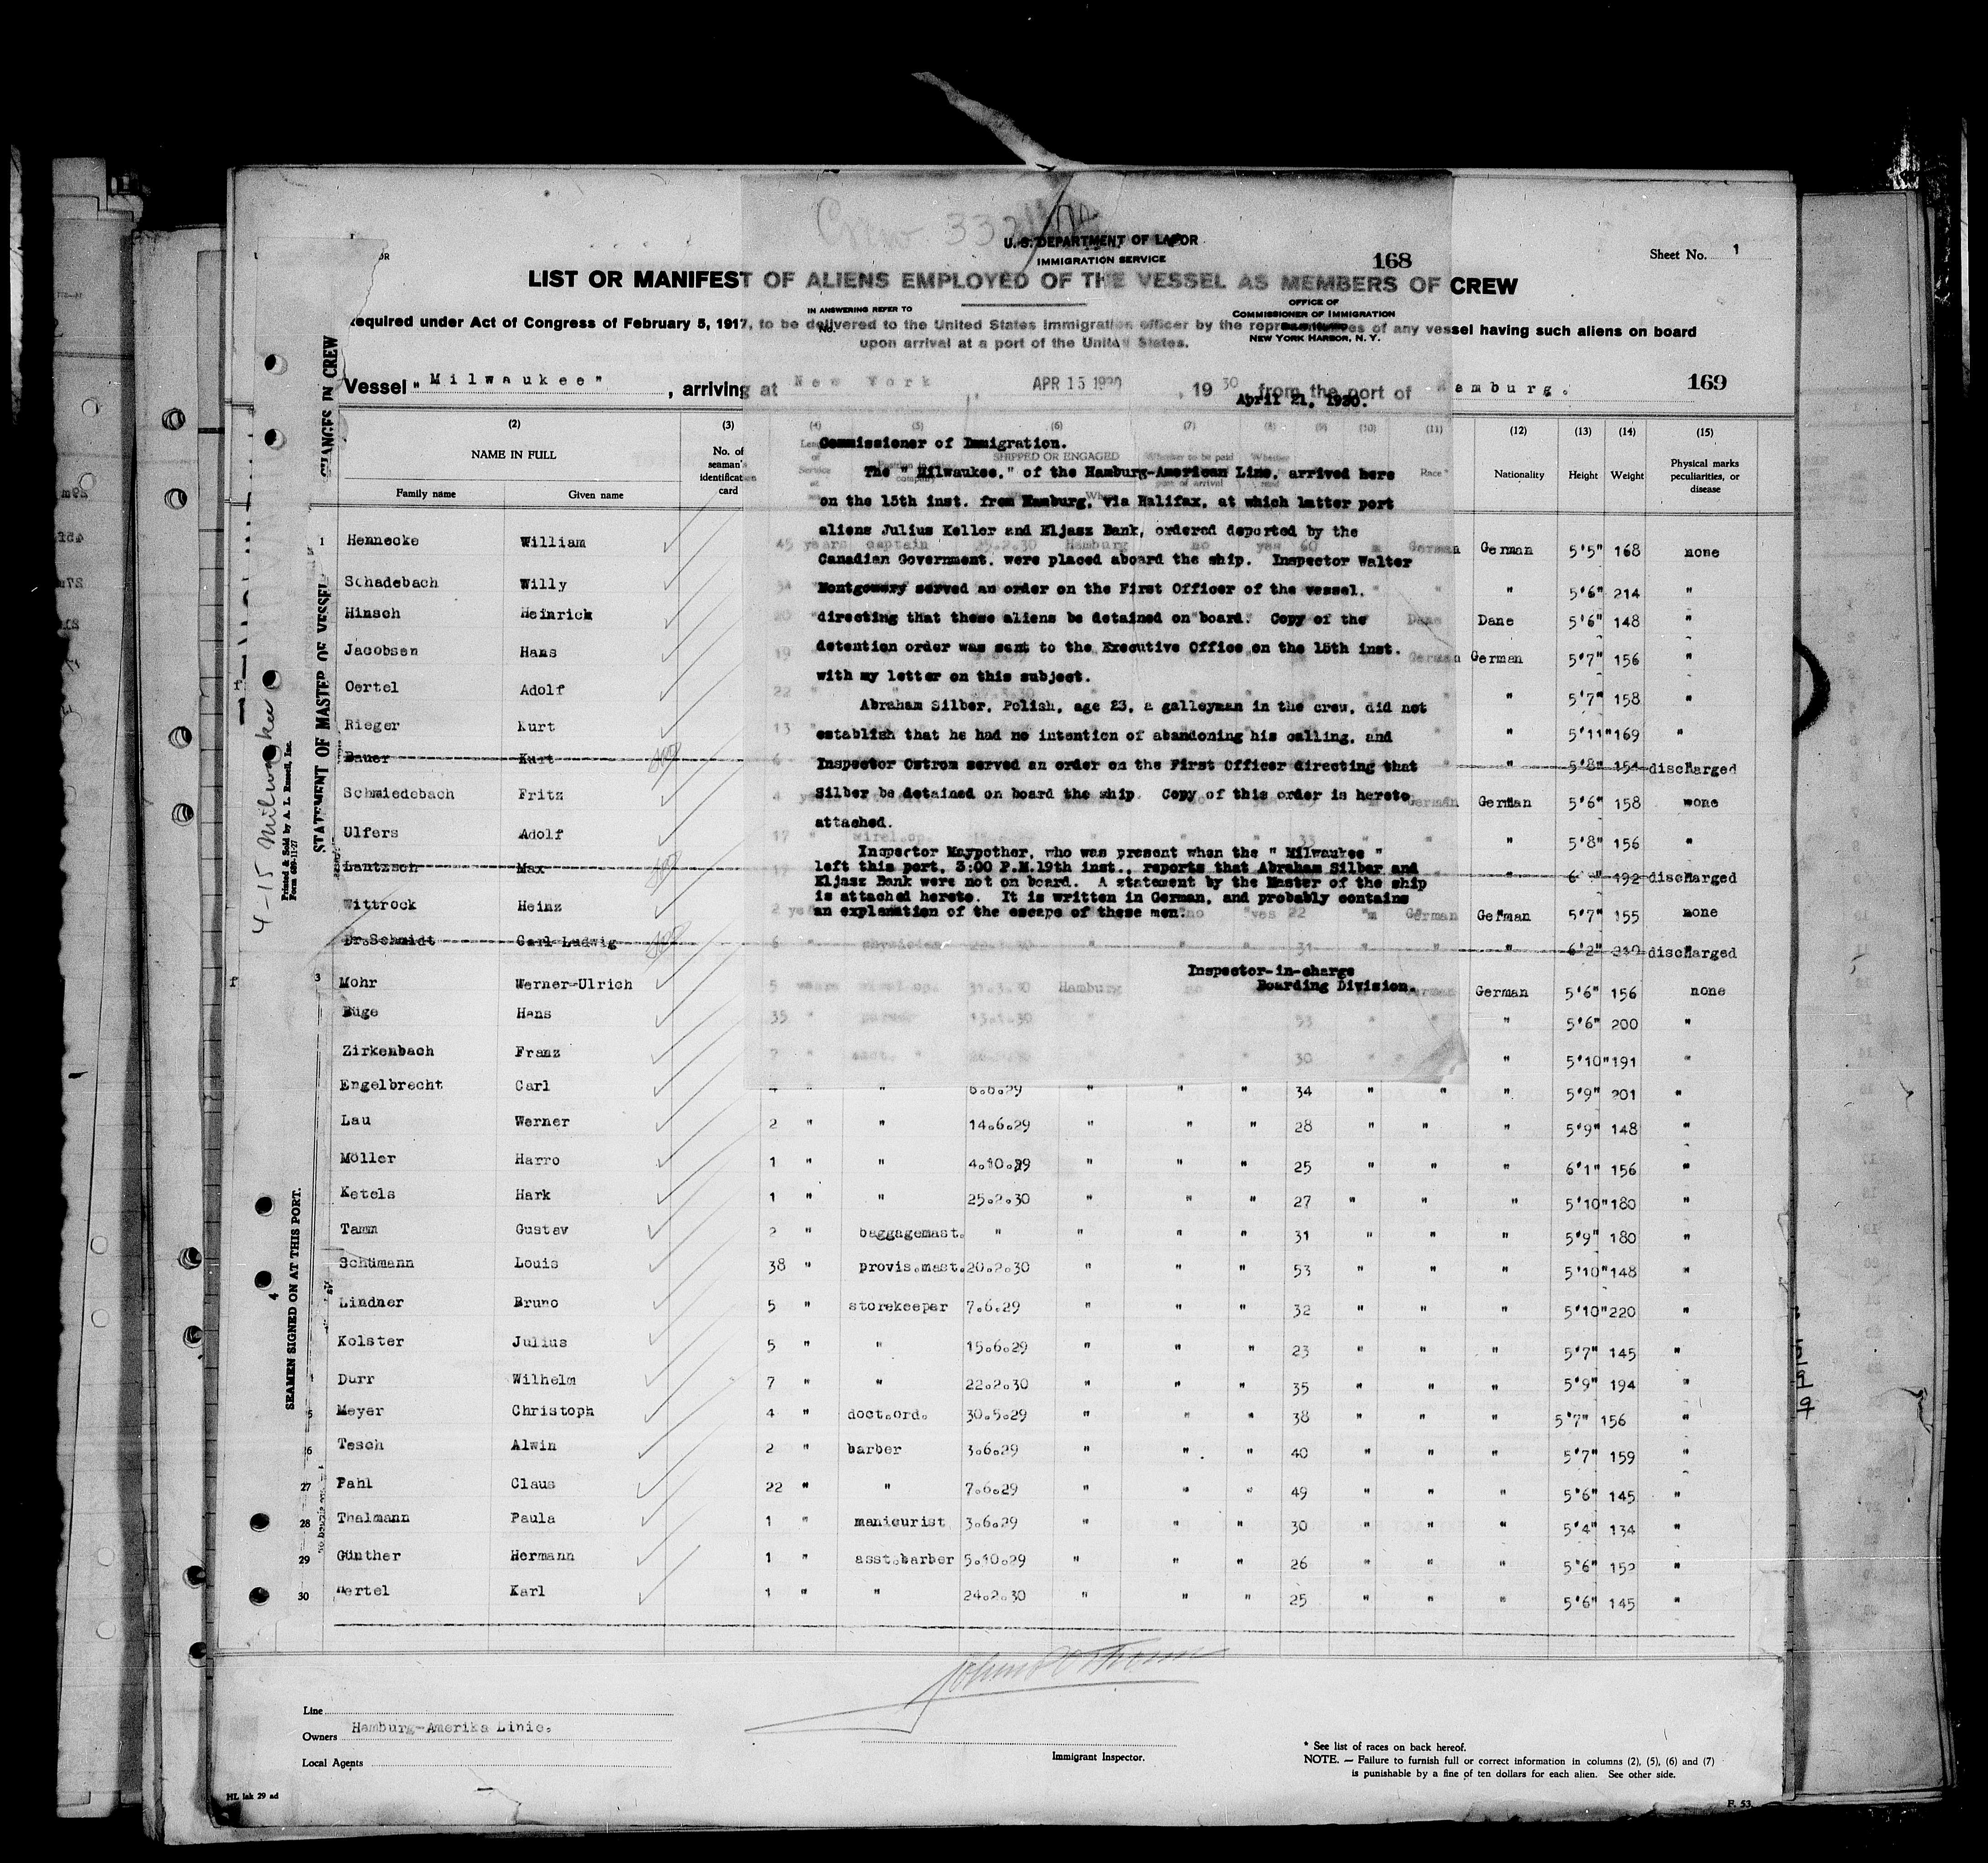 Crew 332
U. S. DEPARTMENT OF LABOR
IMMIGRATION SERVICE
168
Sheet No. 1
LIST OR MANIFEST OF ALIENS EMPLOYED OF THE VESSEL AS MEMBERS OF CREW
IN ANSWERING REFER TO
No.
OFFICE OF
COMMISSIONER OF IMMIGRATION
NEW YORK HARBOR, N. Y.
Required under Act of Congress of February 5, 1917, to be delivered to the United States Immigration officer by the representatives of any vessel having such aliens on board
upon arrival at a port of the United States.
169
Vessel "Milwaukee" , arriving at New York , APR 15 1930 , 19 30 from the port of Hamburg.
April 21, 1930.
(2) (3) (4) (5) (6) (7) (8) (9) (10) (11) (12) (13) (14) (15)
NAME IN FULL
Family name Given name
No. of seaman's identification card
SHIPPED OR ENGAGED
Race*
Nationality Height Weight Physical marks peculiarities, or disease
Commissioner of Immigration.
The " Milwaukee," of the Hamburg-American Line, arrived here
on the 15th inst. from Hamburg, via Halifax, at which latter port
aliens Julius Keller and Eljasz Bank, ordered deported by the
Canadian Government, were placed aboard the ship. Inspector Walter
Montgomery served an order on the First Officer of the vessel,
directing that these aliens be detained on board. Copy of the
detention order was sent to the Executive Office on the 15th inst.
with my letter on this subject.
Abraham Silber, Polish, age 23, a galleyman in the crew, did not
establish that he had no intention of abandoning his calling, and
Inspector Ostrom served an order on the First Officer directing that
Silber be detained on board the ship. Copy of this order is hereto
attached.
Inspector Maypother, who was present when the " Milwaukee "
left this port, 3:00 P.M.19th inst., reports that Abraham Silber and
Eljasz Bank were not on board. A statement by the Master of the ship
is attached hereto. It is written in German, and probably contains
an explanation of the escape of these men.
Inspector-in-charge
Boarding Division.
1 Hennecke William 45 years captain 25.2.30 Hamburg no yes 60 m German German 5'5" 168 none
Schadebach Willy " 5'6" 214 "
Hinsch Heinrich Dane Dane 5'6" 148 "
Jacobsen Hans 19 German German 5'7" 156 "
Oertel Adolf 22 " " 5'7" 158 "
Rieger Kurt 13 " " 5'11" 169 "
Bauer Kurt 6 " 5'8" 154 discharged
Schmiedebach Fritz 4 German German 5'6" 158 none
Ulfers Adolf 17 " wirel.op. 33 " " 5'8" 156 "
Lantzsch Max " 6' " 192 discharged
Wittrock Heinz 2 no yes 22 m German German 5'7" 155 none
Dr.Schmidt Carl-Ludwig 6 " physician 31 " " 6'2" 210 discharged
3 Mohr Werner-Ulrich 5 years wirel.op. 31.3.30 Hamburg no German German 5'6" 156 none
Büge Hans 35 " 53 " " 5'6" 200 "
Zirkenbach Franz 30 " " 5'10" 191 "
Engelbrecht Carl " " 6.6.29 " " " 34 " " " 5'9" 201 "
Lau Werner 2 " " 14.6.29 " " " 28 " " " 5'9" 148 "
Möller Harro 1 " " 4.10.29 " " " 25 " " " 6'1" 156 "
Ketels Hark 1 " " 25.2.30 " " " 27 " " " 5'10" 180 "
Tamm Gustav 2 " baggagemast. " " " " 31 " " " 5'9" 180 "
Schümann Louis 38 " provis.mast. 20.2.30 " " " 53 " " " 5'10" 148 "
Lindner Bruno 5 " storekeeper 7.6.29 " " " 32 " " " 5'10" 220 "
Kolster Julius 5 " " 15.6.29 " " " 23 " " " 5'7" 145 "
Durr Wilhelm 7 " " 22.2.30 " " " 35 " " " 5'9" 194 "
5 Meyer Christoph 4 " doct.ord. 30.5.29 " " " 38 " " " 5'7" 156 "
26 Tesch Alwin 2 " barber 3.6.29 " " " 40 " " " 5'7" 159 "
27 Pahl Claus 22 " " 7.6.29 " " " 49 " " " 5'6" 145 "
28 Thalmann Paula 1 " manicurist 3.6.29 " " " 30 " " " 5'4" 134 "
29 Günther Hermann 1 " asst.barber 5.10.29 " " " 26 " " " 5'6" 152 "
30 Karl 1 " " 24.2.30 " " " 25 " " " 5'6" 145 "
CHANGES IN CREW
STATEMENT OF MASTER OF VESSEL
SEAMEN SIGNED ON AT THIS PORT.
4-15 Milwaukee
Printed & Sold by A. L. Russell, Inc.
Form 689-11-27
Line
Owners Hamburg-Amerika Linie.
Local Agents
Immigrant Inspector.
* See list of races on back hereof.
NOTE. — Failure to furnish full or correct information in columns (2), (5), (6) and (7)
is punishable by a fine of ten dollars for each alien. See other side.
HL lak 29 ad
F. 53